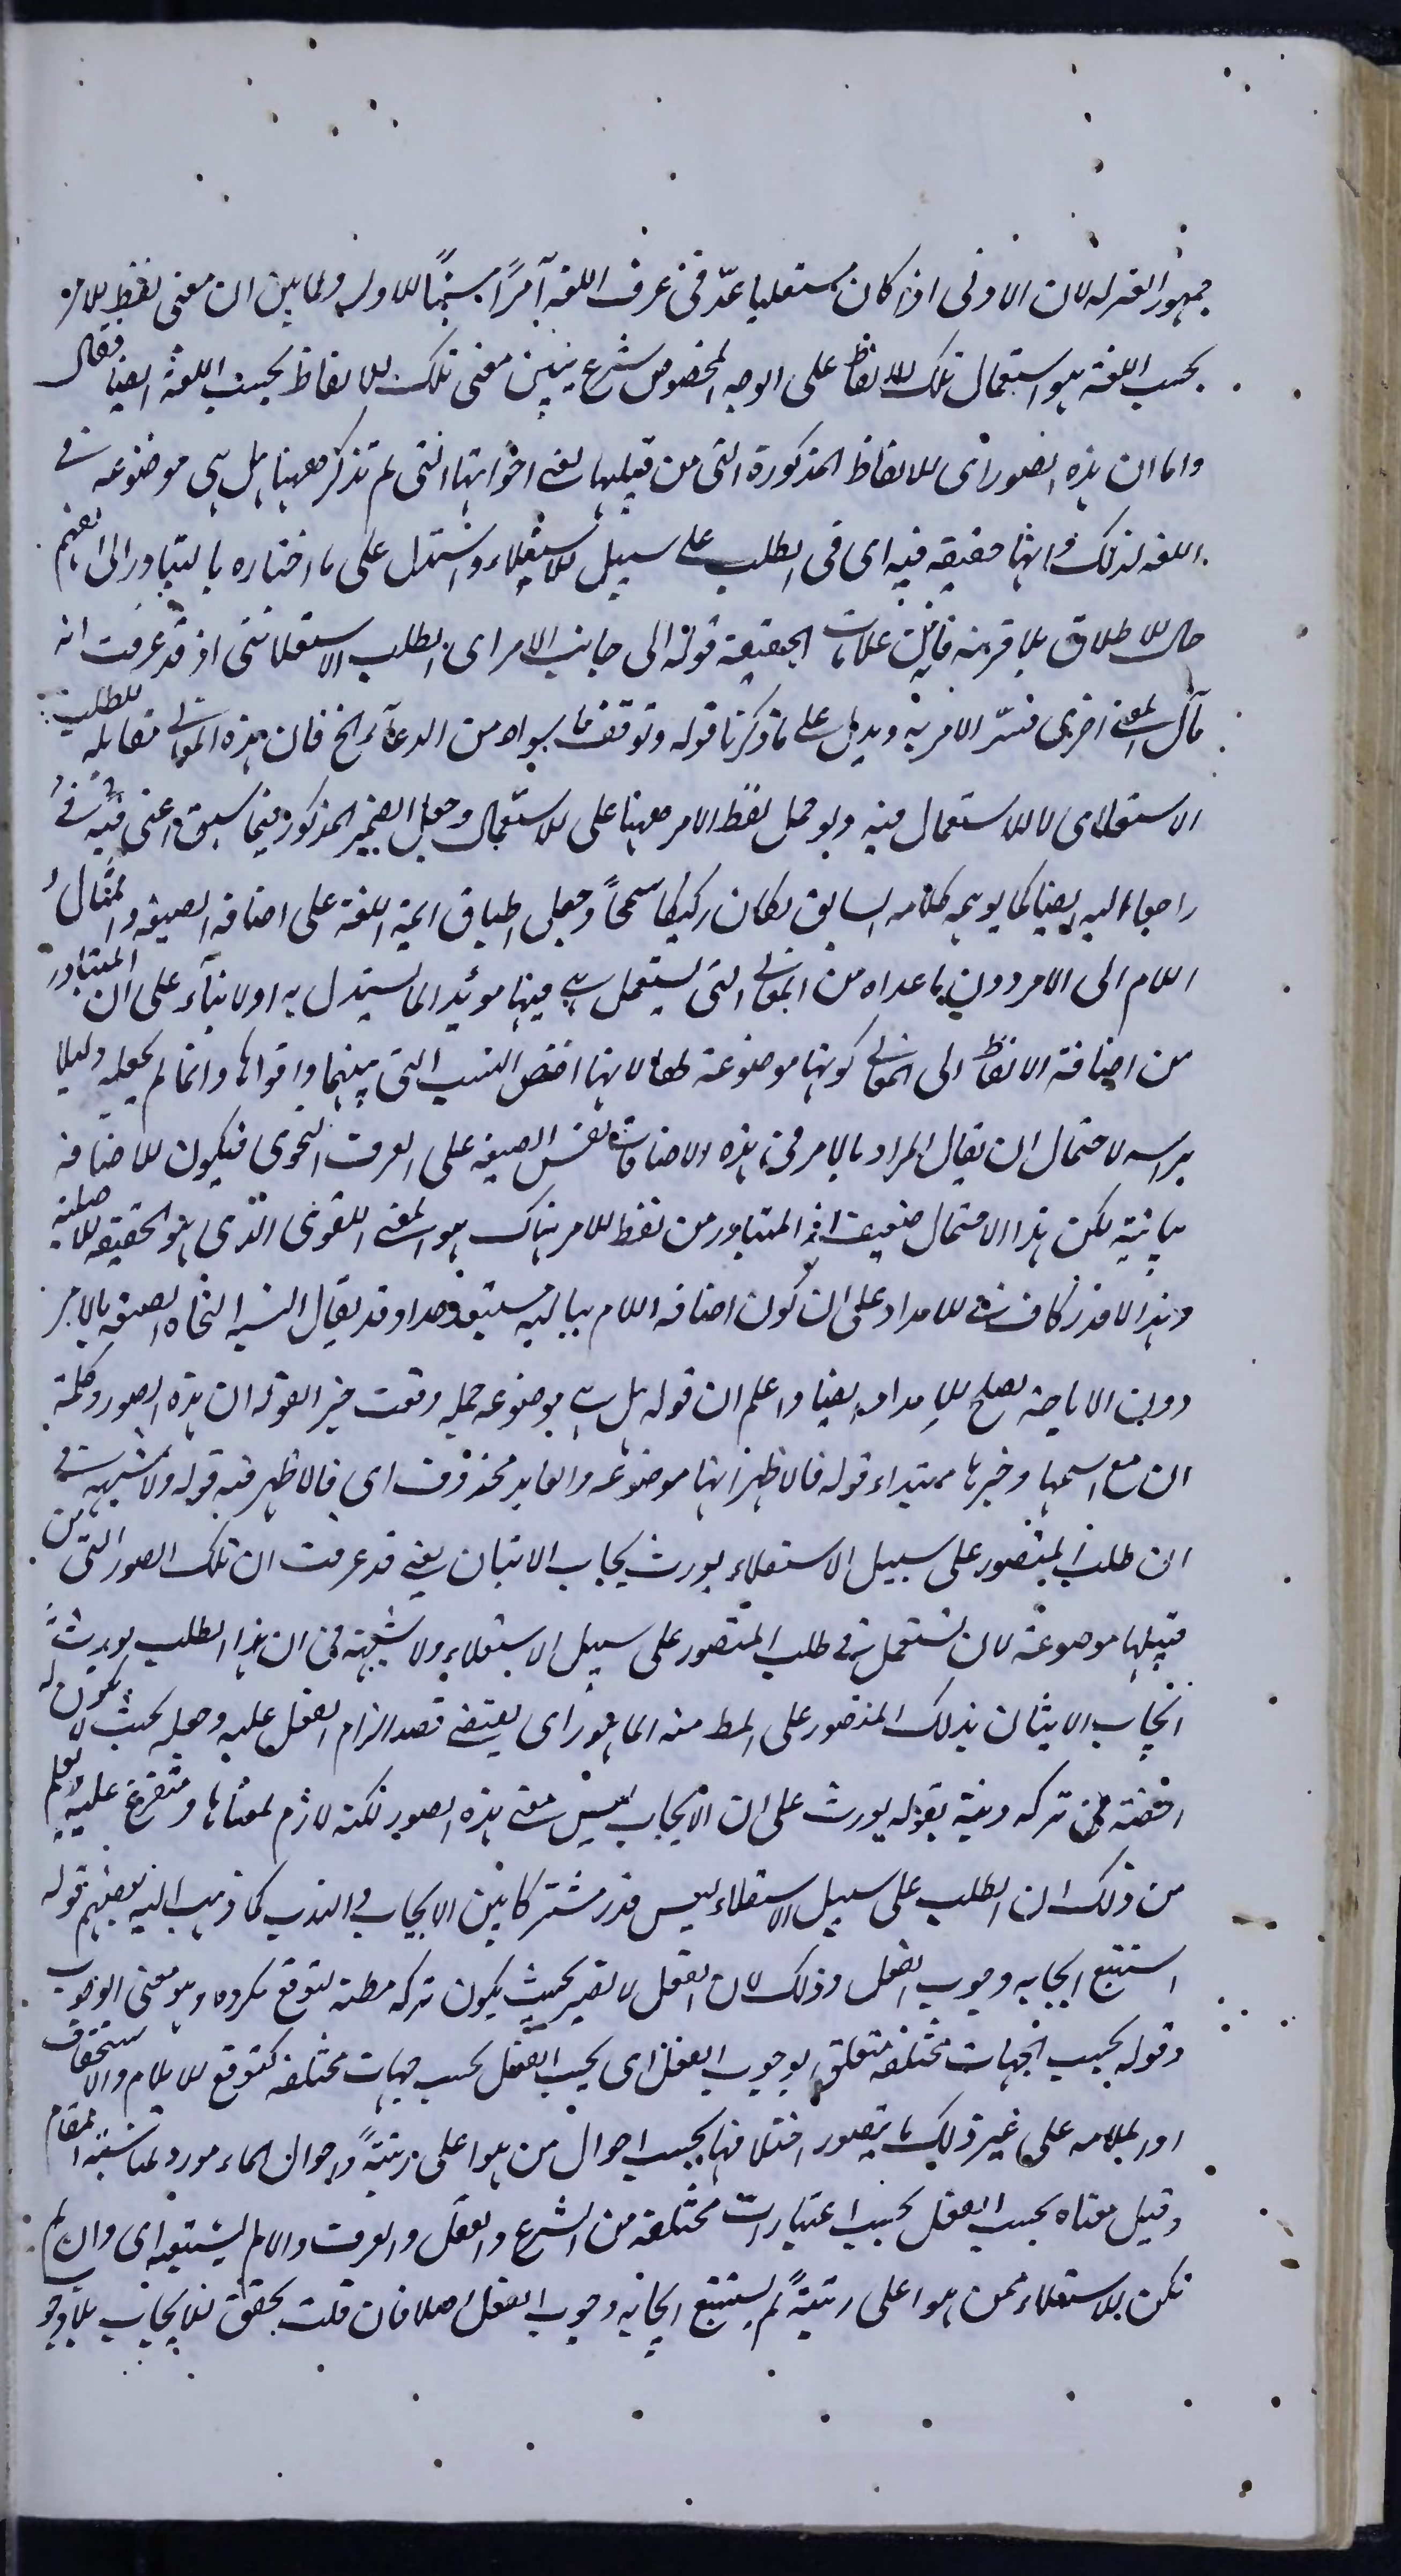 جمهور المعتزله لان الادنى اذا كان مستعليا عدّ فى عرف اللغه آمرًا مستهجنًا للاول ولما بين ان معنى لفظ الامر
بحسب اللغة هو استعمال تلك الالفاظ على الوجه المخصوص شرع يبين معنى تلك الالفاظ بحسب اللغة ايضا فقال
واما ان هذه الصور اى الالفاظ المذكورة التى من قبيلها يعنى اخواتها التى لم تذكر ههنا هل هى موضوعه فى
اللغه لذلك وانها حقيقه فيه اى فى الطلب على سبيل الاستعلاء واستدل على ما اختاره بالتبادر الى الفهم
حال الاطلاق بلا قرينه فانه من علامات الحقيقة قوله الى جانب الامر اى الطلب الاستعلائى اذ قد عرفت انه
مآل المعنى اخرى فسّر الامر به ويدل على ما ذكرنا قوله وتوقف ما سواه من الدعآء الخ فان هذه المعانى مقابله للطلب
الاستعلائى لا للاستعمال فيه ولو حمل لفظ الامر ههنا على الاستعمال وجعل الضمير المذكور فيما سبق اعنى فيه فى
راجعا اليه ايضا كما يوهمه كلامه السابق لكان ركيكا سمجًا وجعل اطباق ائمة اللغة على اضافه الصيغه والمثال و
اللام الى الامر دون ما عداه من المعانى التى يستعمل هى فيها مؤيدا لما استدل به اولا بنآء على ان المتبادر
من اضافة الالفاظ الى المعانى كونها موضوعة لها لانها اخص النسب التى بينهما واقواها وانما لم يجعله دليلا
براسه لاحتمال ان يقال المراد بالامر فى هذه الاضافات نفس الصيغه على العرف النحوى فيكون الاضافه
بيانيه لكن هذا الاحتمال ضعيف اذ المتبادر من لفظ الامر هناك هو المعنى اللغوى الذى هو الحقيقه الاصليه
وهذا القدر كاف فى الامداد على ان كون اضافه اللام بيانيه مستبعد جدا وقد يقال النسبه النحاه الصيغه بالامر
دون الاباحة يصلح للامداد ايضا واعلم ان قوله هل هى موضوعه جمله وقعت خبر القوله ان هذه الصور وكلمة
ان مع اسمها وخبرها مبتداء قوله فالاظهر انها موضوعه والعايد محذوف اى فالاظهر فيه قوله ولا شبهة فى
ان طلب المتصور على سبيل الاستعلاء يورث ايجاب الاتيان يعنى قد عرفت ان تلك الصور التى من
قبيلها موضوعة لان تستعمل فى طلب المتصور على سبيل الاستعلاء ولا شبهة فى ان هذا الطلب يورث
ايجاب الاتيان بذلك المتصور على المط منه المامور اى يقتضى قصد الزام الفعل عليه وجعله بحيث لا يكون له
رخصة فى تركه ونبه بقوله يورث على ان الايجاب ليس معنى هذه الصور لكنه لازم لمعناها ومتفرع عليه وعلم
من ذلك ان الطلب على سبيل الاستعلاء ليس قدر مشتركا بين الايجاب والندب كما ذهب اليه بعضهم قوله
استتبع ايجابه وجوب الفعل وذلك لان الفعل لا يصير بحيث يكون تركه مظنه لتوقع مكروه وهو معنى الوجوب
وقوله بحسب الجهات مختلفه متعلق بوجوب الفعل اى يجب الفعل بحسب جهات مختلفه كتوقع الايلام والاستحقاق
او الملامه على غير ذلك ما يتصور اختلافها بحسب احوال من هو اعلى رتبةً واحوال المامور ولمناسبة المقام
وقيل معناه بحسب الفعل بحسب اعتبارات مختلفة من الشرع والعقل والعرف والا لم يستتبعه اى وان لم
يكن الاستعلاء ممن هو اعلى رتبةً لم يستتبع ايجابه وجوب الفعل اصلا فان قلت تحقق الايجاب بلا وجو